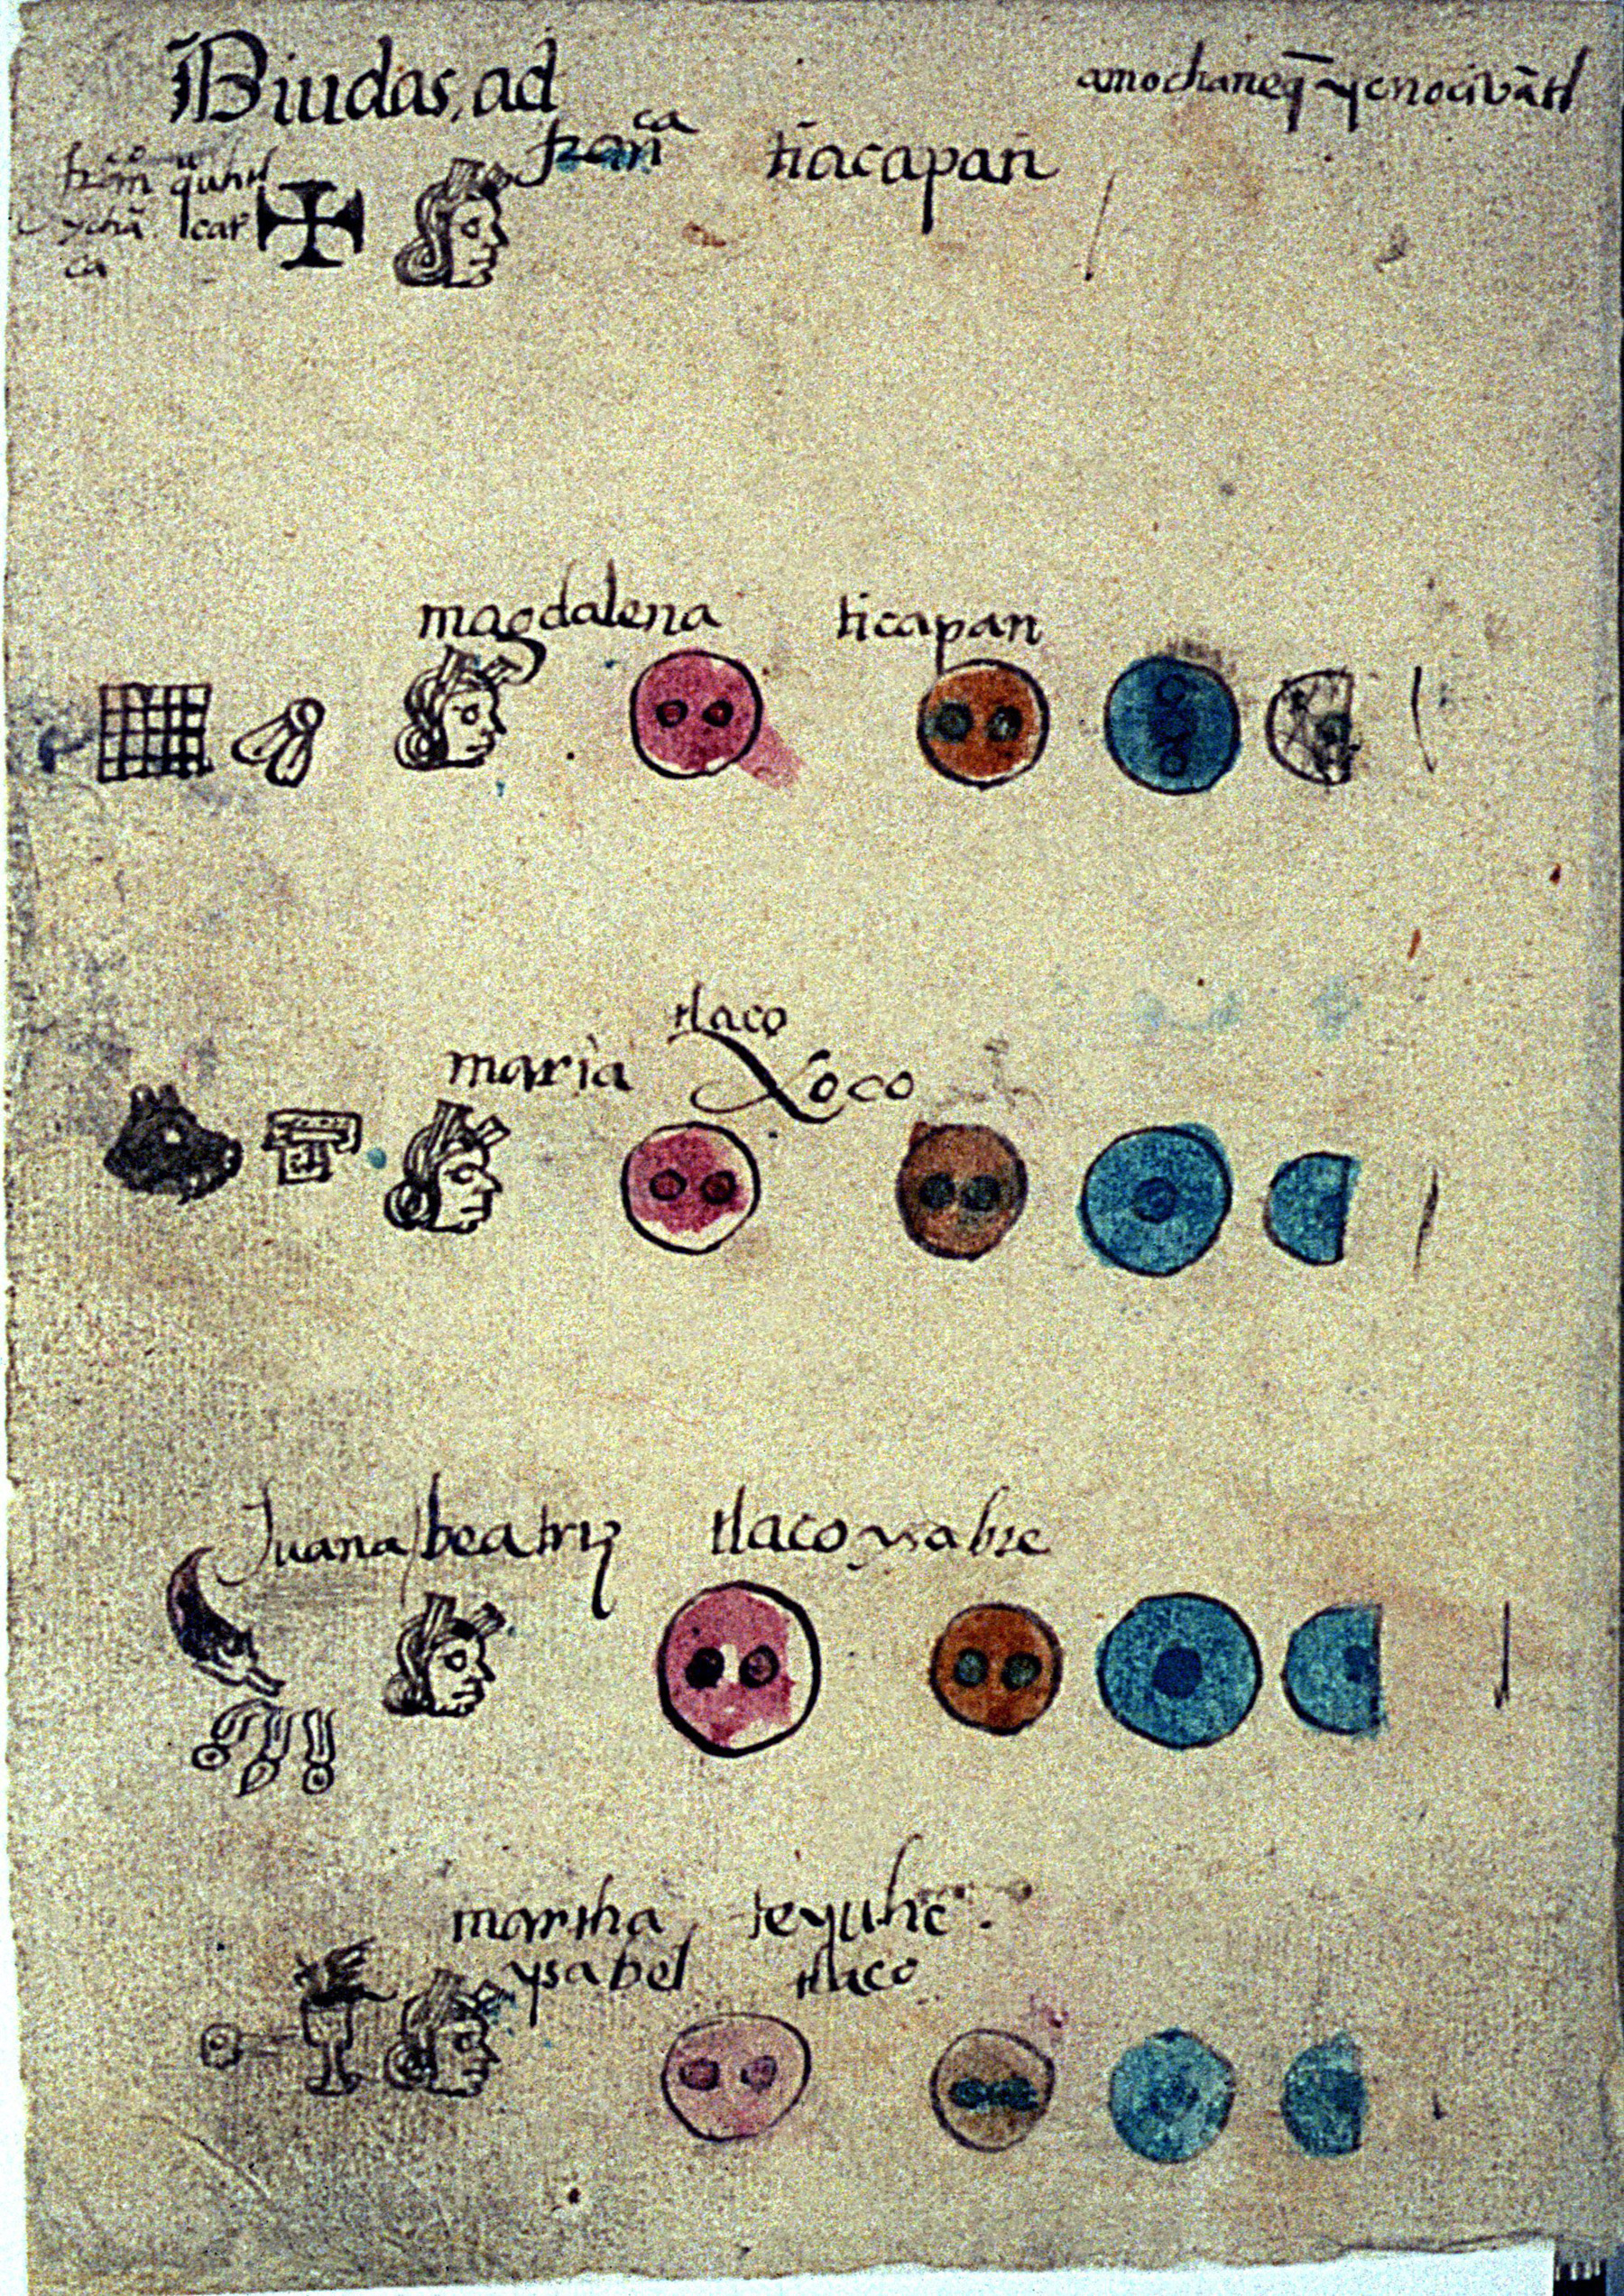 Biudas, ad
amochaneq̄ ycnocivātl
franca tiacapan
frco mīn quauhtl
ychā.
ca
magdalena ticapan
tlaco
maria Xoco
Juana beatriz tlaco ysabel
martha teyuhc.
ysabel tlaco